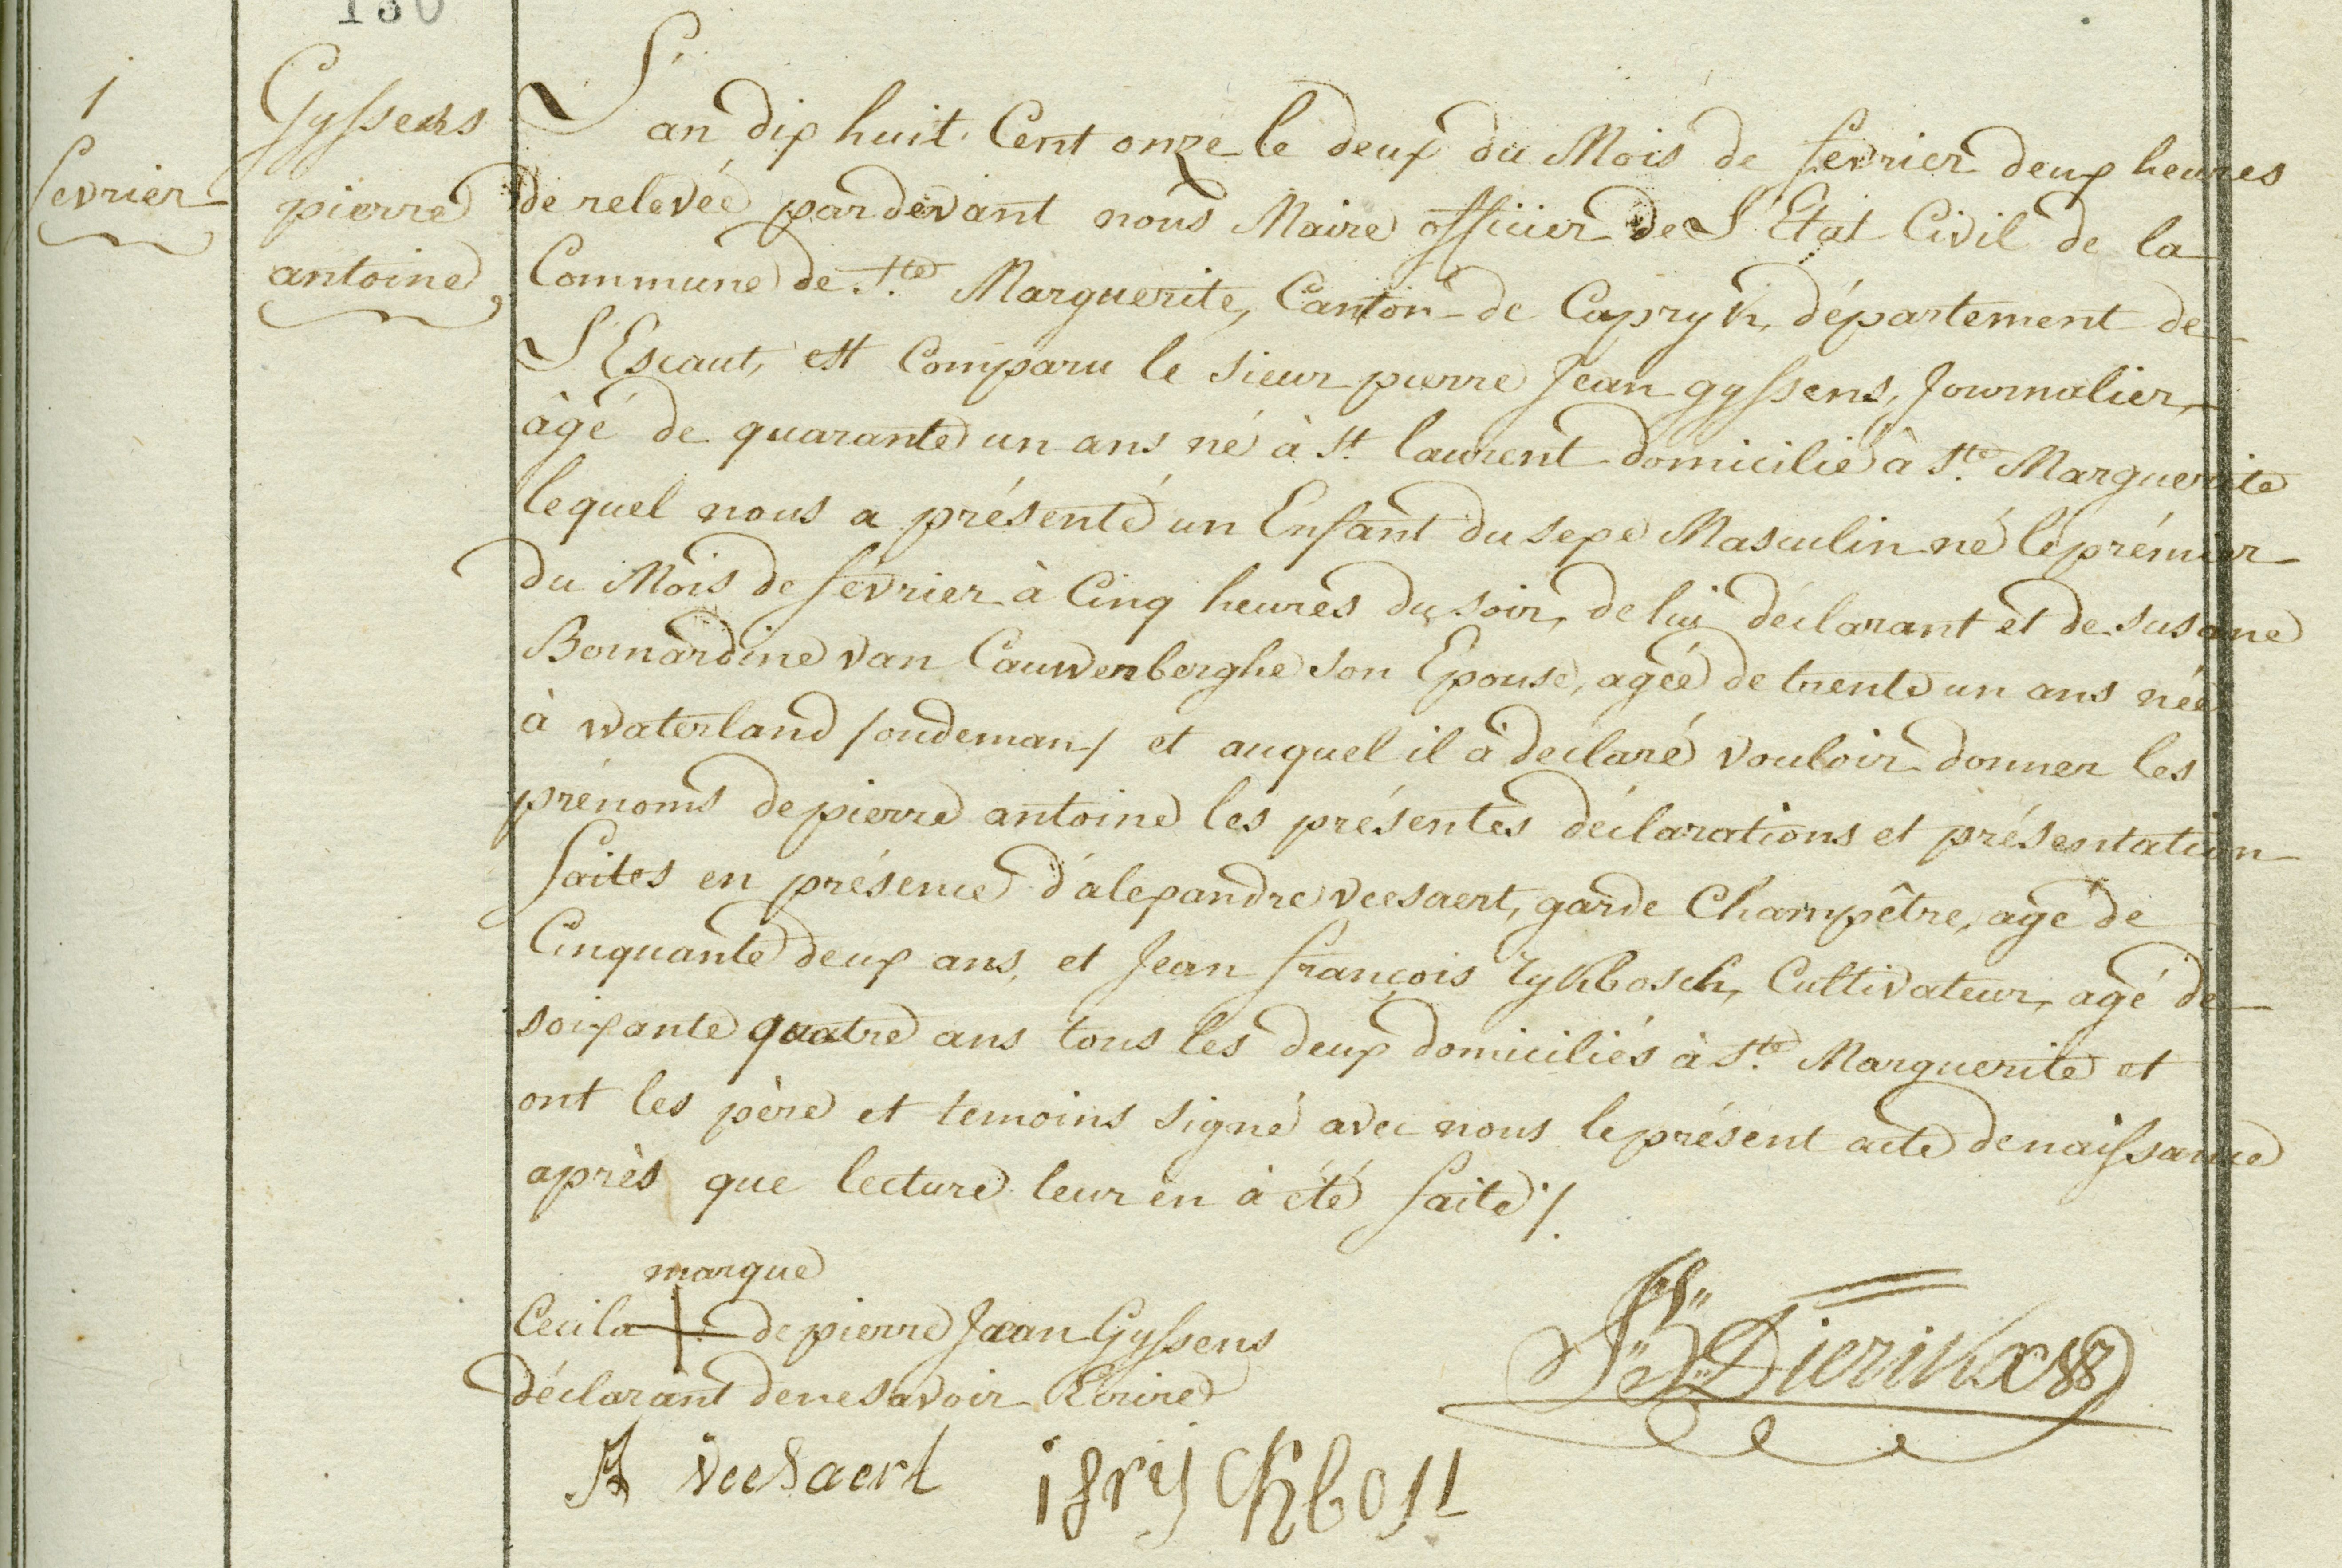 130
1
fevrier
Gyssens
pierre
antoine
L'an dix huit Cent onze le deux du Mois de fevrier deux heures
de relevéé pardevant nous Maire officier de L'Etat Civil de la
Commune de Ste. Marguerite, Canton de Capryk, département de
L'Escaut, est Comparu le sieur pierre Jean gyssens, Journalier,
âgé de quarante un ans né à St. laurent domicilié à Ste. Marguerite
lequel nous a présenté un Enfant du sexe Masculin né le prémier
du Mois de fevrier à Cinq heures du soir, de lui déclarant et de susane
Bernardine van Cauwenberghe son Epouse, agéé de trente un ans née
à waterland /oudeman/ et auquel il à declaré vouloir donner les
prénoms de pierre antoine les présentes déclarations et présentation
faites en présence d'alexandre veesaert, garde Champêtre, agé de
Cinquante deux ans, et Jean françois rykbosch, Cultivateur, agé de
soixante quatre ans tous les deux domiciliés à Ste. Marguerite et
ont les père et temoins signé avec nous le présent acte de naissance
après que lecture leur en à été faite /.
marque
Ceci la + de pierre Jean Gyssens
déclarant de ne savoir Ecrire
A veesaert
Dierikx